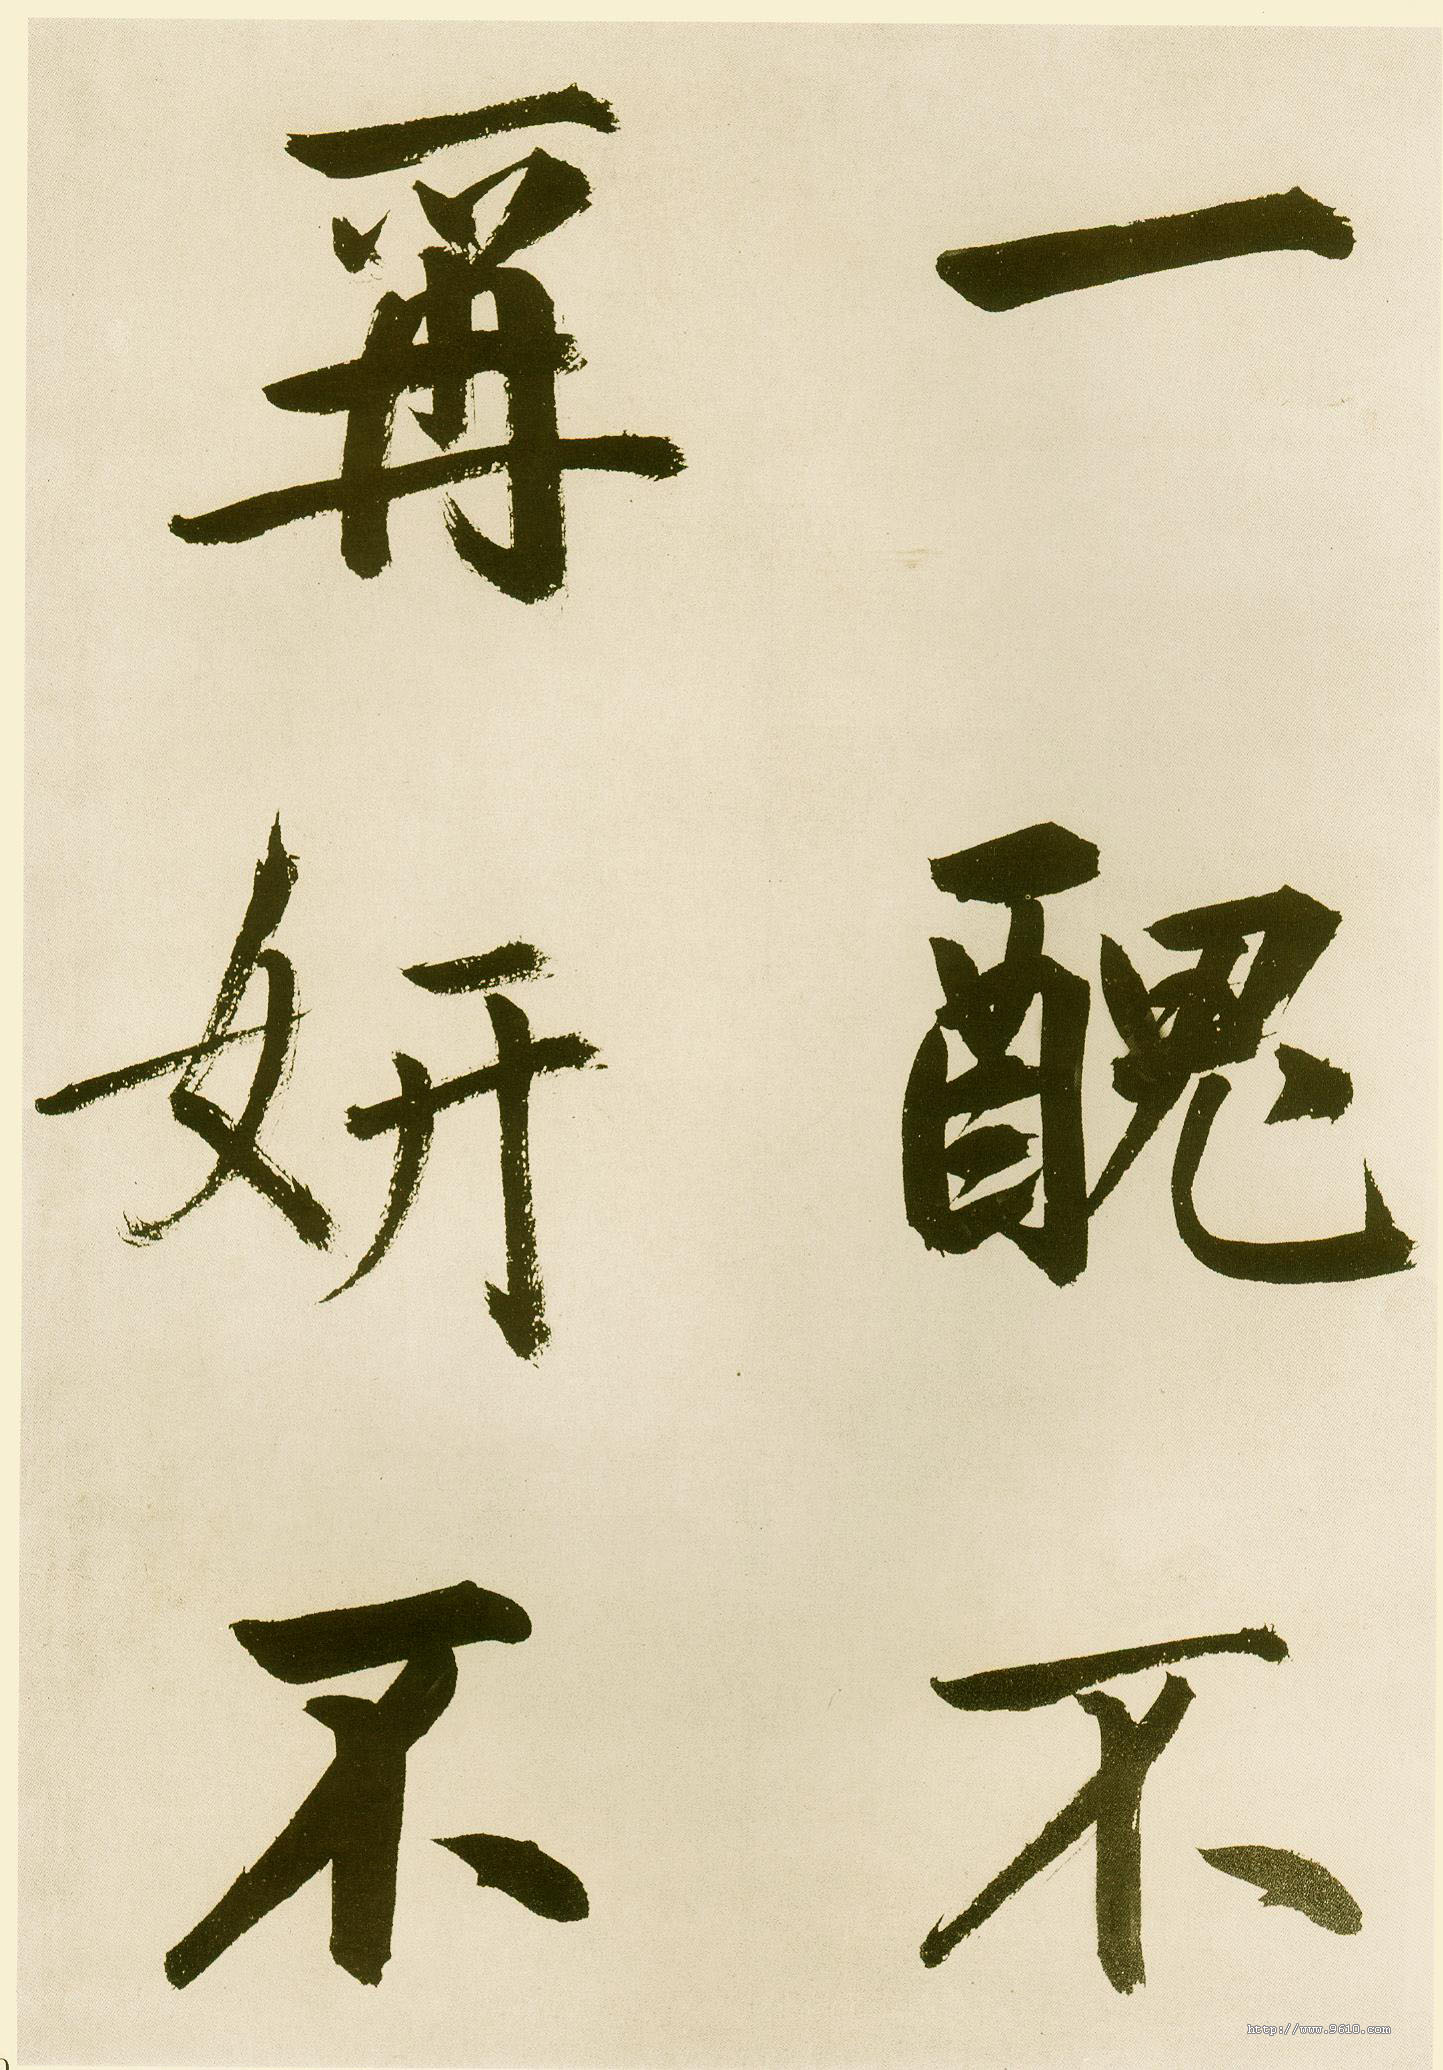 一醜不
再妍不
http://www.9610.com